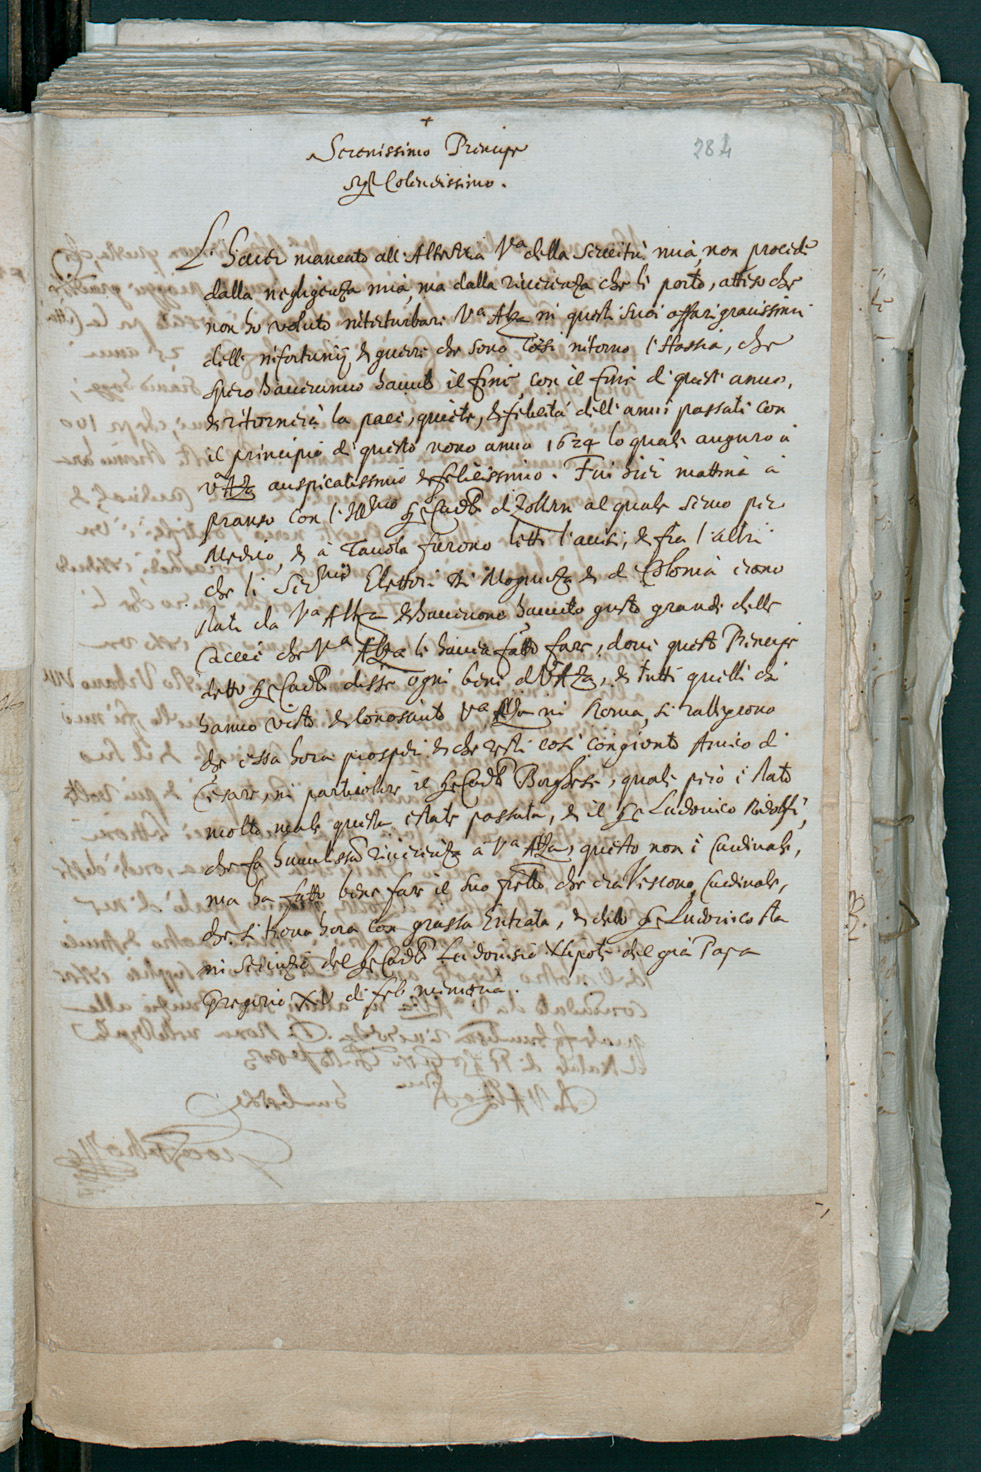 +
Serenissimo Principe
Sig.r Colendissimo.
284
L'haver mancato all'Altezza V.a della servitù mia, non procede
dalla negligenza mia, ma dalla riverenza che li porto, atteso che
non ho voluto nisturbare V.a Alza in questi suoi affari gravissimi
delli infortunij di guerre che sono così intorno l'Hassia, che
spero haveranno havuto il fine, con il fine di quest'anno,
et ritornerà la pace, quiete, et felicità dell'anni passati con
il principio di questo novo anno 1624 lo quale auguro a
V. Alza auspicatissimo et felicissimo. Fui dieci mattina a
pranso con l'Ill.mo S.r Card.l di Zollern al quale servo per
Medico, et a Tavola furono letti l'avisi, et fra l'altri
che li Ser.mi Elettori di Mogunza et di Colonia erano
stati da V.a Alza et havevono havuto gusto grande delle
Caccie che V.a Alza li haveva fatto fare, dove questo Principe
detto S.r Card.l disse ogni bene di V. Alza, et tutti quelli che
hanno visto et conosciuto V.a Alza in Roma, si rallegrono
che essa hora prosperi et che resti così congionto Amico di
Cesare, in particolare il S.r Card.l Borghese, quale però è stato
molto male questa estate passata, et il S.r Ludovico Ridolfi,
che fa humilissa riverenza a V.a Alza, questo non è Cardinale,
ma ha fatto bene fare il suo fr.ello che era Vescovo, Cardinale,
che si trova hora con grassa Entrata, et detto S.r Ludovico sta
in servizio del S.r Card.l Ludovisio Nipote del già Papa
Gregorio XV di fel. memoria.